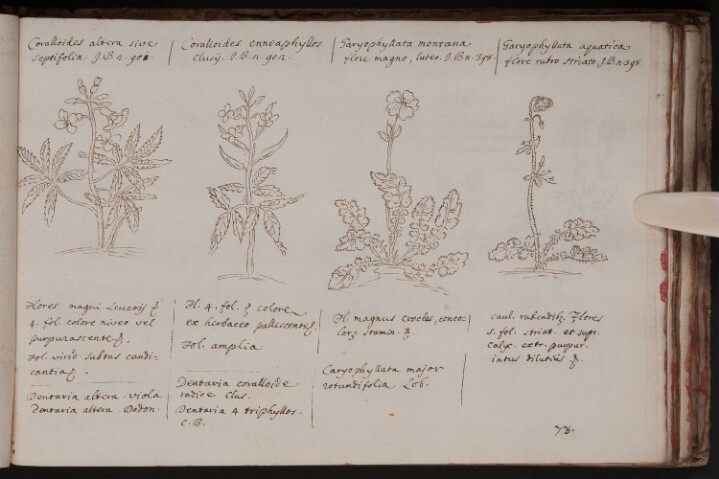 Coralloides altera sive
septifolia. J.B. n. 901.
Coralloides enneaphyllos
Clusÿ. J.B. n. 901.
Garyophyllata montana
flore magno, luteo. J.B. n. 398.
Garyophyllata aquatica
flore rubro striato. J.B. n 398.
Flores magni Leucoij
4. fol colore niveo vel
purpurascente
Fol. virid. subtus candi=
cantia
Dentaria altera. viola
dentaria altera. Dodon.
Fl. 4. fol. colore
ex herbaceo pallescente
Fol. amplia
Dentaria coralloide
radice Clus.
Dentaria 4 triphyllos.
C.B.
Fl. magnus croceus, conco=
lorz stamin.
Caryophyllata major
rotundifolia Lob.
caul. Flores
5. fol. striat. et supr.
Calyx. extr. purpur.
intus dilutius
78.